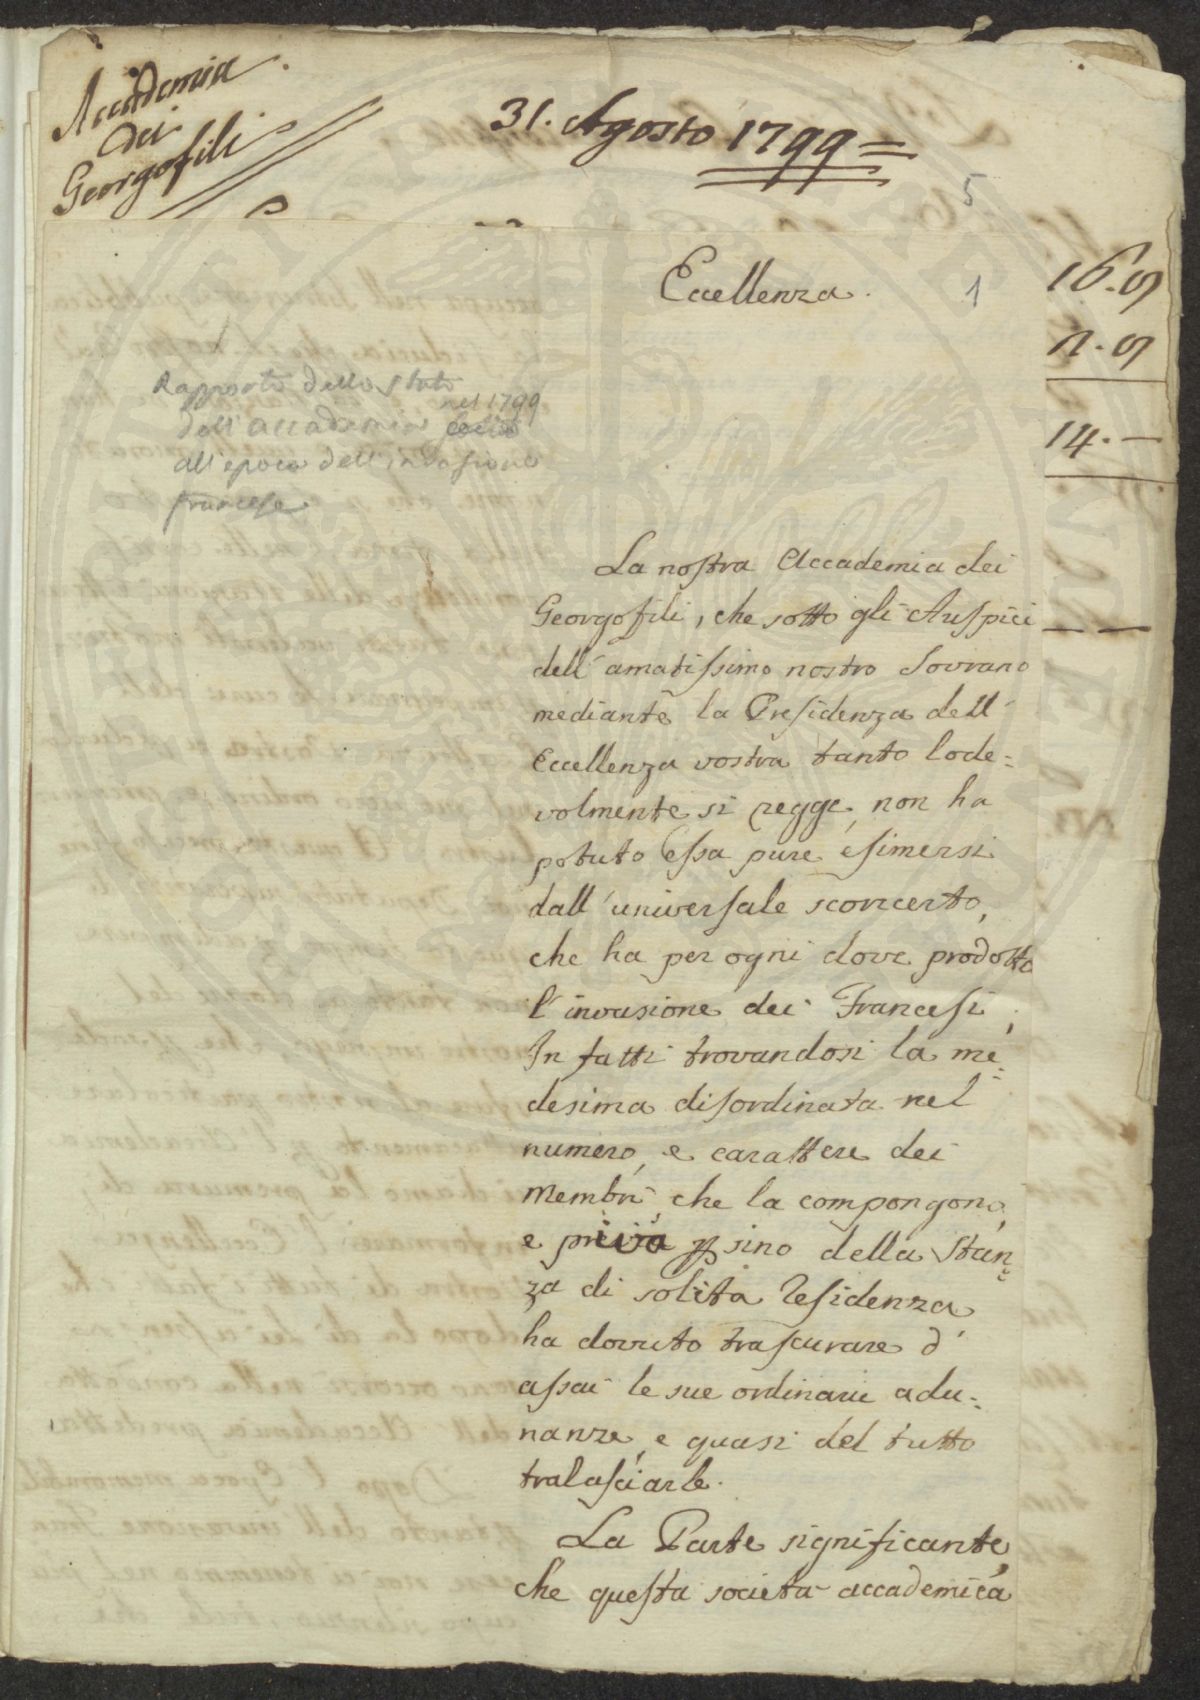 Accademia
dei
Georgofili
31. Agosto 1799 =
5
Eccellenza.
1
16.9
2.9
14.—
Rapporto dello stato
nel 1799
dell'accademia
all'epoca dell'invasione
francese
La nostra Accademia dei
Georgofili, che sotto gli Auspici
dell'amatissimo nostro Sovrano
mediante la Presidenza dell'
Eccellenza vostra tanto lode=
volmente si regge, non ha
potuto essa pure esimersi
dall'universale sconcerto,
che ha per ogni dove prodotto
l'invasione dei Francesi.
In fatti trovandosi la me=
desima disordinata nel
numero, e carattere dei
Membri, che la compongono,
e priva sino della Stan=
za di solita residenza
ha dovuto trascurare d'
assai le sue ordinarie adu=
nanze, e quasi del tutto
tralasciarle.
La Parte significante,
che questa società accademica